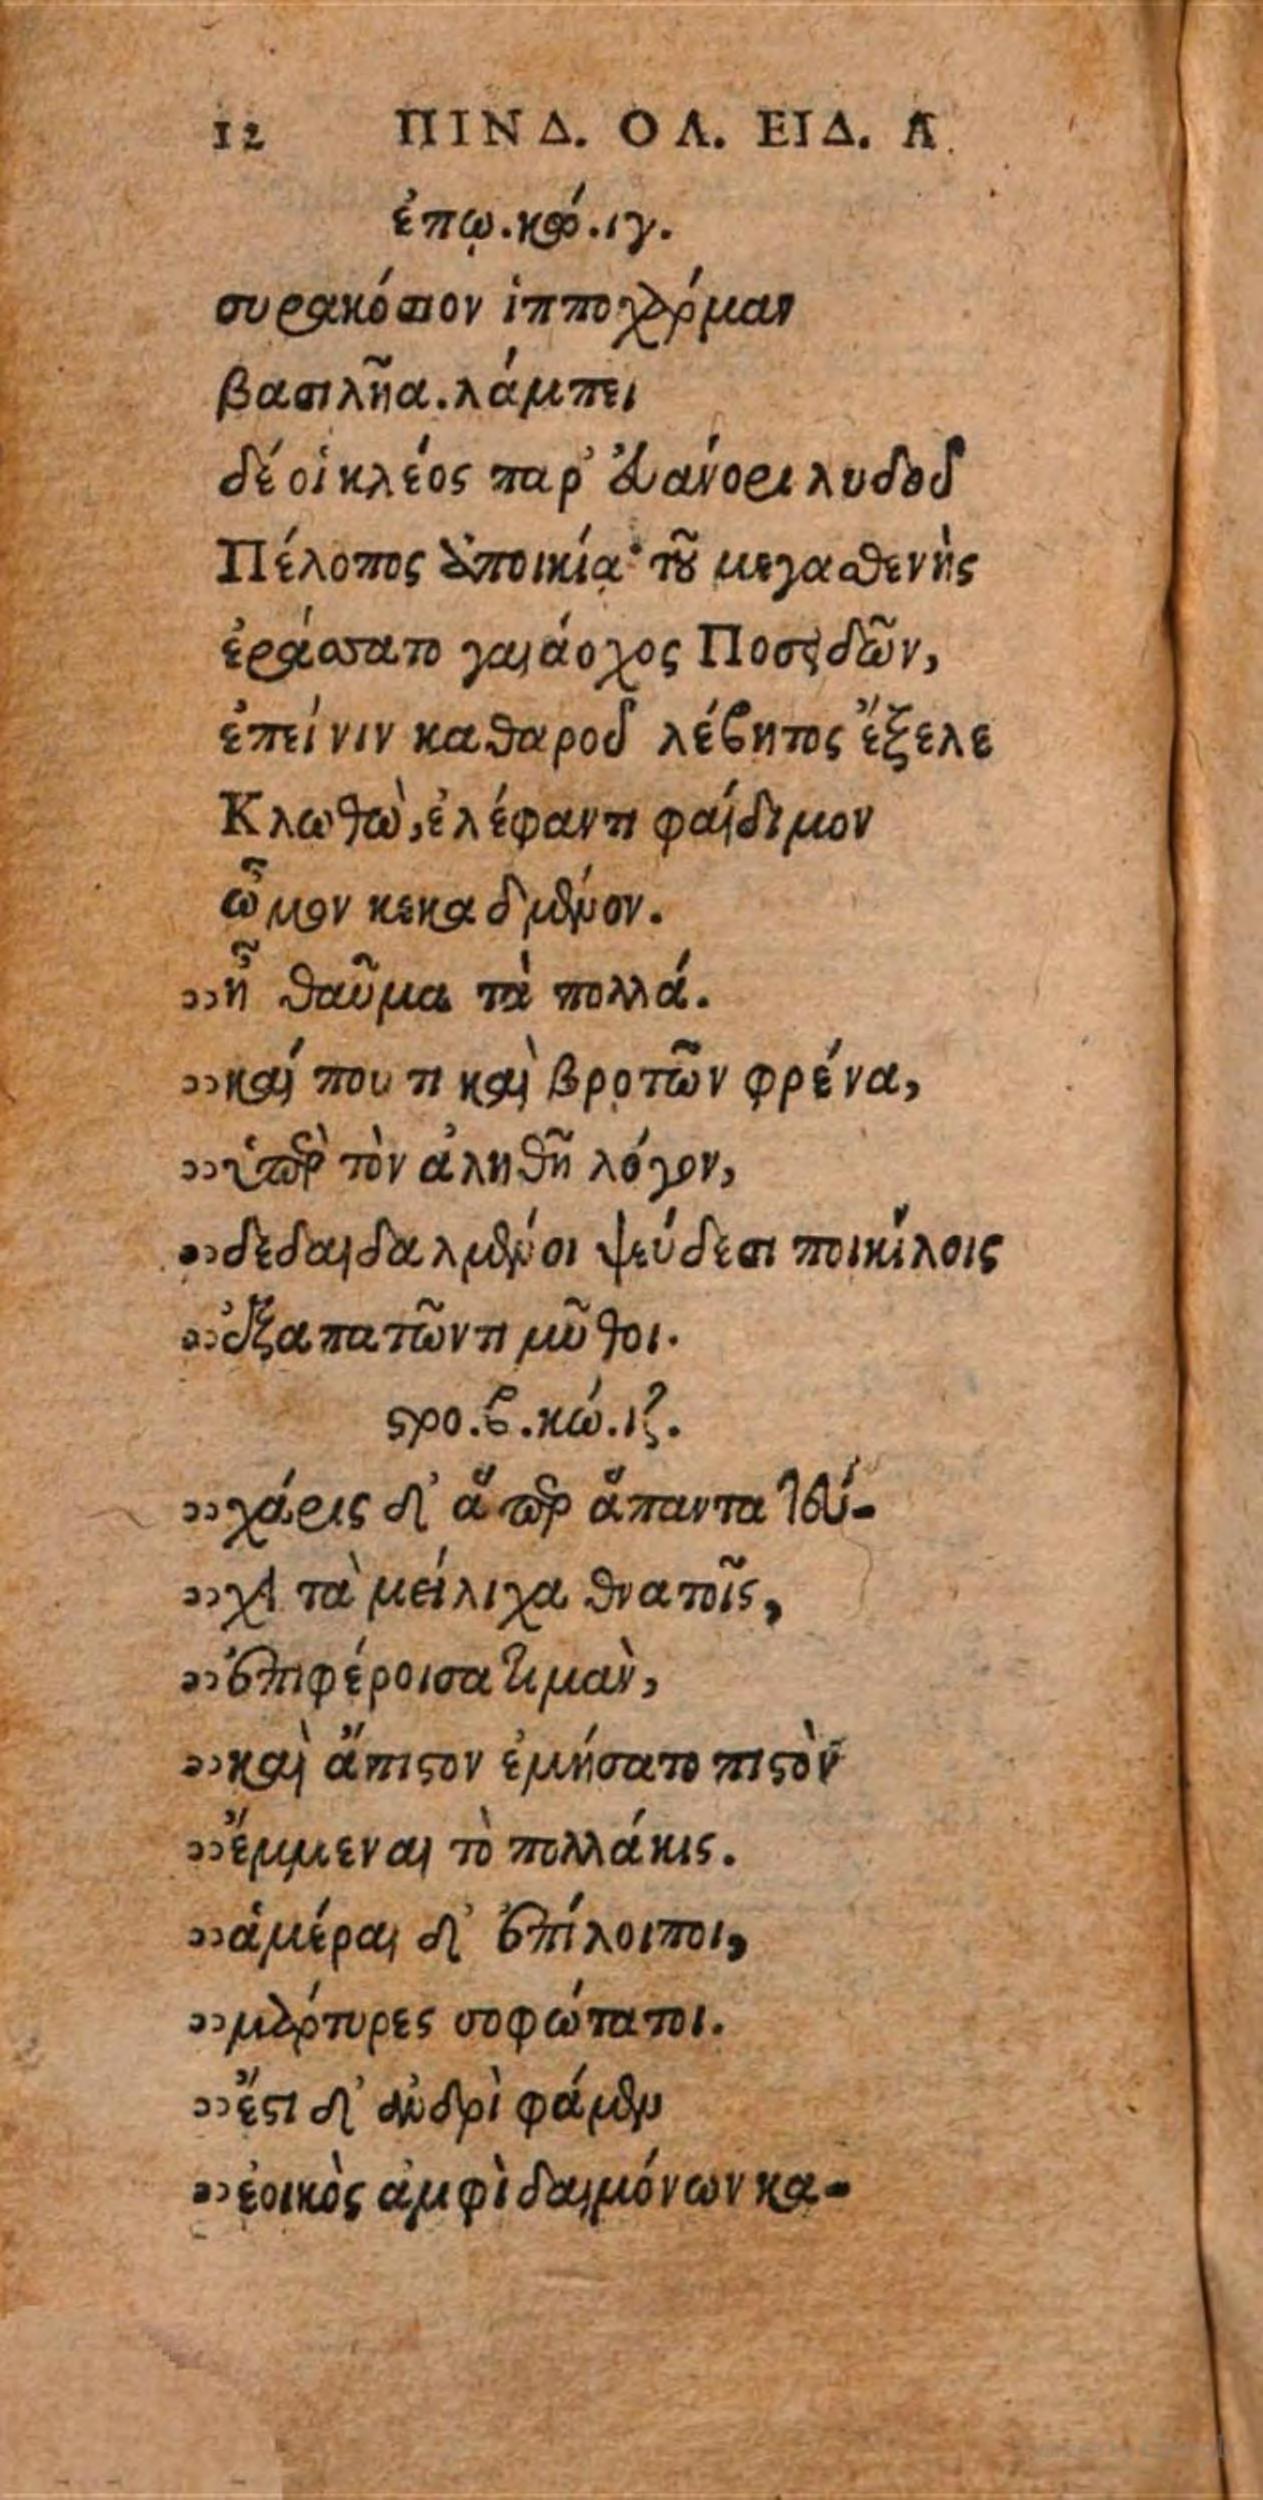 12 ΠΙΝΔ. ΟΛ. ΕΙΔ. Α
ἐπῳ. κώ. ιγ.
συρακόσιον ἱπποχάρμαν
βασιλῆα. λάμπει
δέ οἱ κλέος παρ' εὐάνορι λυδοῦ
Πέλοπος ἀποικίᾳ· τοῦ μεγασθενὴς
ἐράσσατο γαιάοχος Ποσειδῶν,
ἐπεί νιν καθαροῦ λέβητος ἔξελε
Κλωθὼ, ἐλέφαντι φαίδιμον
ὦμον κεκαδμένον.
„ἦ θαῦμα τὰ πολλά.
„καί που τι καὶ βροτῶν φρένα,
„ὑπὲρ τὸν ἀληθῆ λόγον,
„δεδαιδαλμένοι ψεύδεσι ποικίλοις
„ἐξαπατῶντι μῦθοι.
ϛρο. β. κώ. ιζ.
„χάρις δ' ἅπερ ἅπαντα τεύ-
„χει τὰ μείλιχα θνατοῖς,
„ἐπιφέροισα τιμὰν,
„καὶ ἄπιϛον ἐμήσατο πιϛὸν
„ἔμμεναι τὸ πολλάκις.
„ἁμέραι δ' ἐπίλοιποι,
„μάρτυρες σοφώτατοι.
„ἔϛι δ' ἀνδρὶ φάμεν
„ἐοικὸς ἀμφὶ δαιμόνων κα-